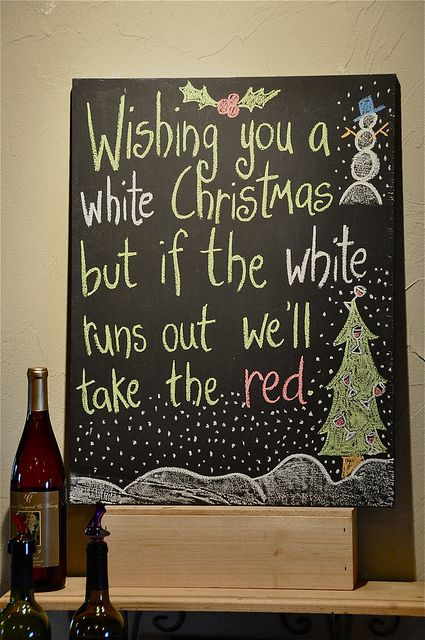 Wishing you a
white Christmas
but if the white
runs out we'll
take the red.